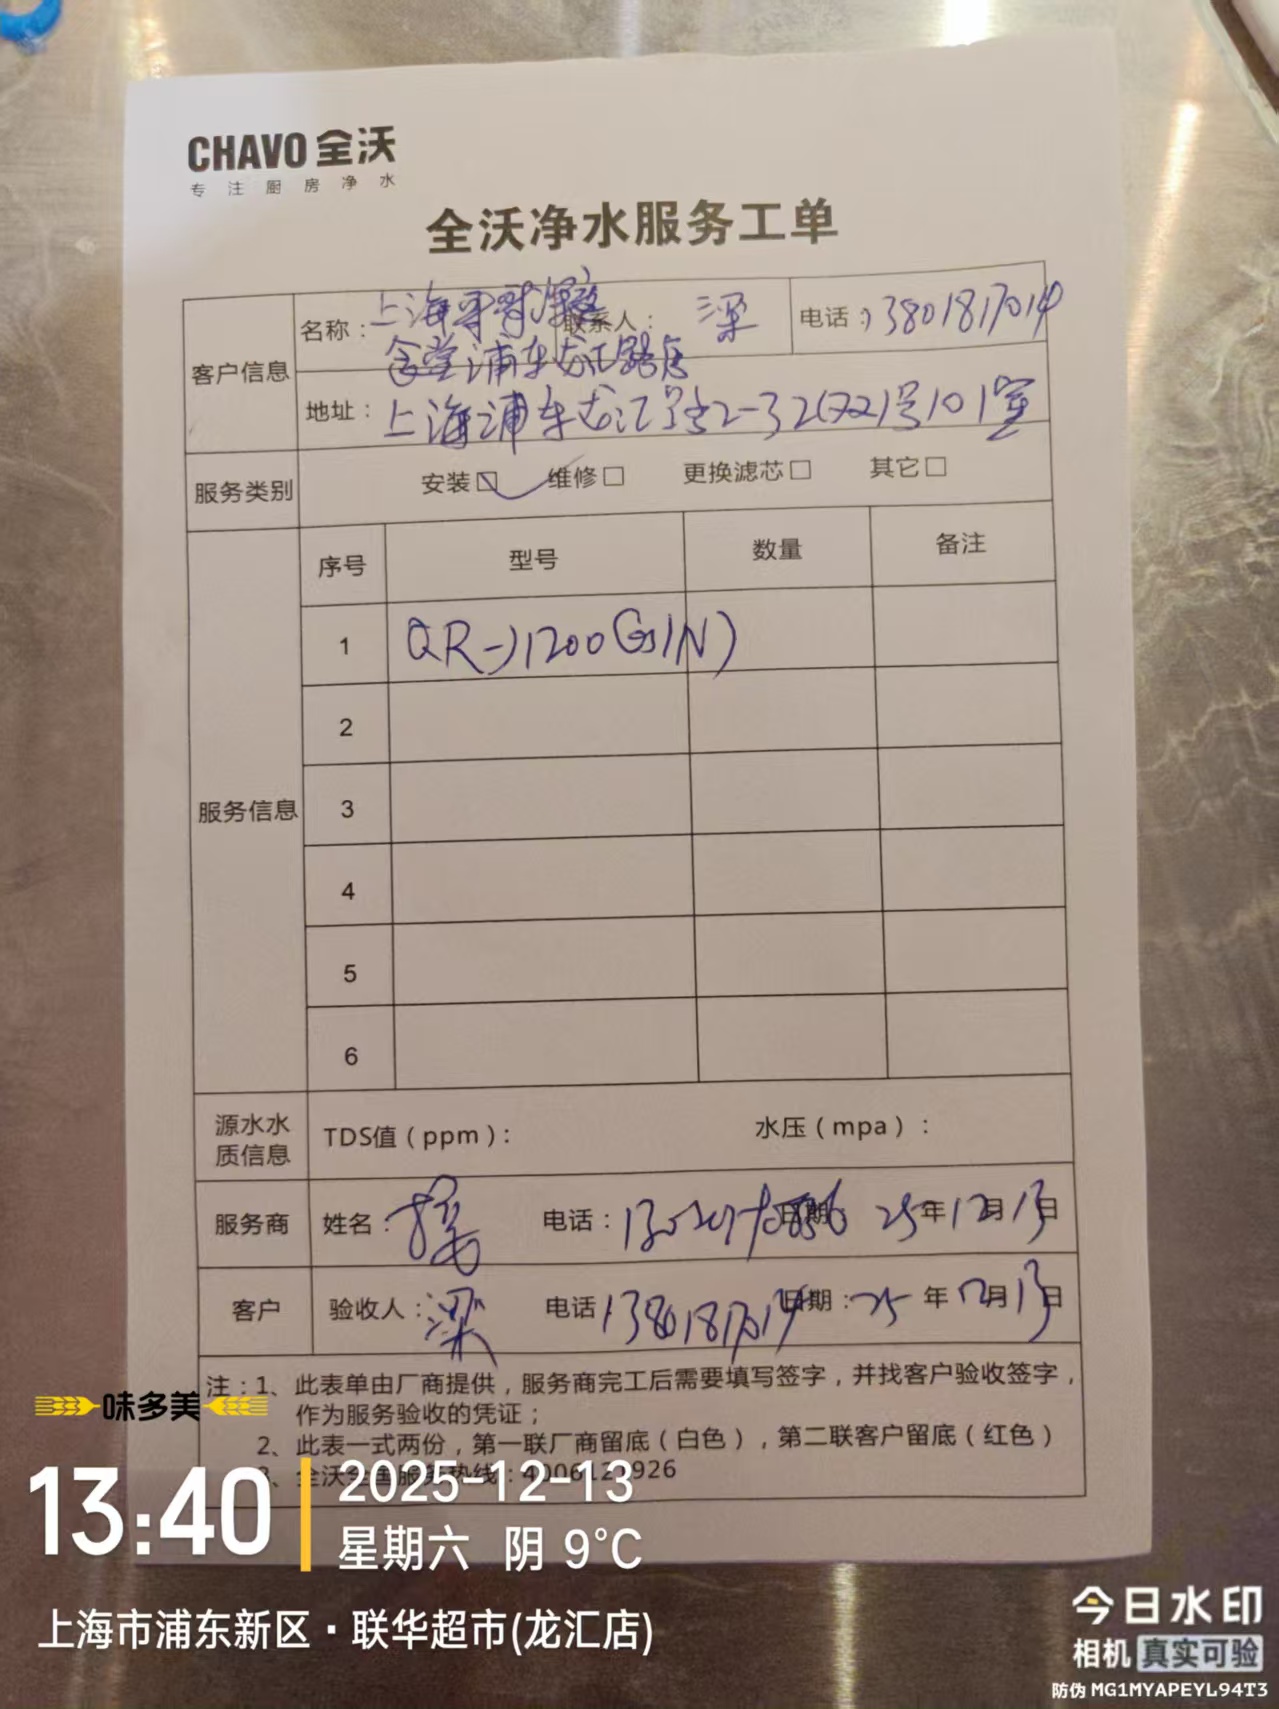 CHAVO 全沃
专注厨房净水
全沃净水服务工单
客户信息
名称：上海 联系人： 梁 电话：13801817014
食堂浦东龙汇路店
地址：上海浦东龙汇路 101室
服务类别 安装☑ 维修□ 更换滤芯□ 其它□
服务信息
序号 型号 数量 备注
1 QR-J1200G(IN)
2
3
4
5
6
源水水质信息 TDS值（ppm）： 水压（mpa）：
服务商 姓名： 电话： 日期： 25年12月13日
客户 验收人：梁 电话 13801817014 日期：25年12月13日
注：1、此表单由厂商提供，服务商完工后需要填写签字，并找客户验收签字，
作为服务验收的凭证；
2、此表一式两份，第一联厂商留底（白色），第二联客户留底（红色）
3、全沃全国服务热线：4006121926
味多美
13:40
2025-12-13
星期六 阴 9°C
上海市浦东新区·联华超市(龙汇店)
今日水印
相机 真实可验
防伪 MG1MYAPEYL94T3